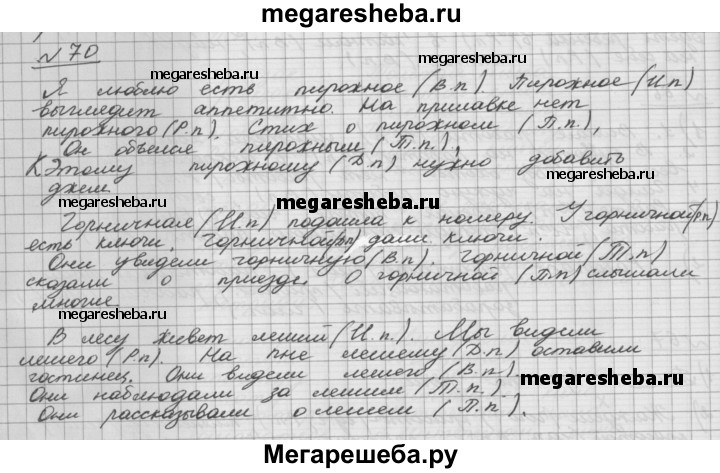 megaresheba.ru
№ 70
megaresheba.ru
Я люблю есть пирожное (В.п). Пирожное (И.п)
megaresheba.ru
выглядит аппетитно. На прилавке нет
пирожного (Р.п). Стих о пирожном (П.п.),
Он объелся пирожным (Т.п.).
К Этому пирожному (Д.п) нужно добавить
megaresheba.ru
джем
megaresheba.ru
Горничная (И.п) подошла к номеру. У горничной (рп)
есть ключи. Горничной (дп) дали ключи.
Они увидели горничную (В.п). Горничной (Т.п)
сказали о приезде. О горничной (П.п) слышали
многие
megaresheba.ru
megaresheba.ru
В лесу живет леший (И.п.). Мы видели
лешего (Р.п). На пне лешему (Д.п) оставили
гостинец. Они видели лешего (В.п).
megaresheba.ru
Они наблюдали за лешим (Т.п).
Они рассказывали о лешем (П.п).
Мегарешеба.ру